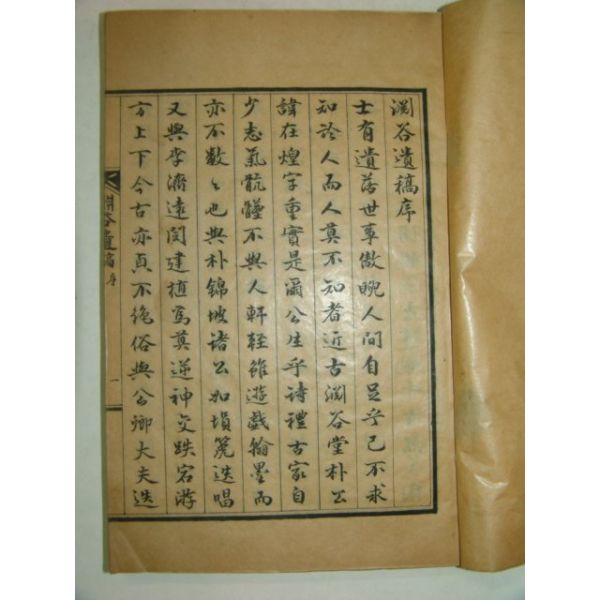 澗谷遺稿序
士有遺落世事傲睨人間自足乎己不求
知於人而人莫不知者近古澗谷堂朴公
諱在煌字重實是爾公生乎詩禮古家自
少志氣骯髒不與人軒輊雖遊戲翰墨而
亦不數〻也與朴錦坡諸公如塤篪迭唱
又與李濟遠閔建植爲莫逆神交跌宕游
方上下今古亦貞不絶俗與公卿大夫迭
澗谷遺稿 序 一